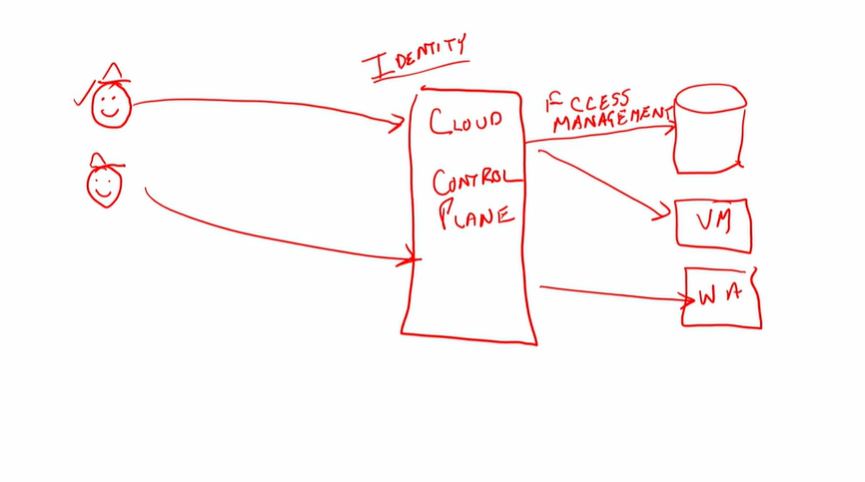 IDENTITY
CLOUD
CONTROL
PLANE
ACCESS
MANAGEMENT
VM
WA